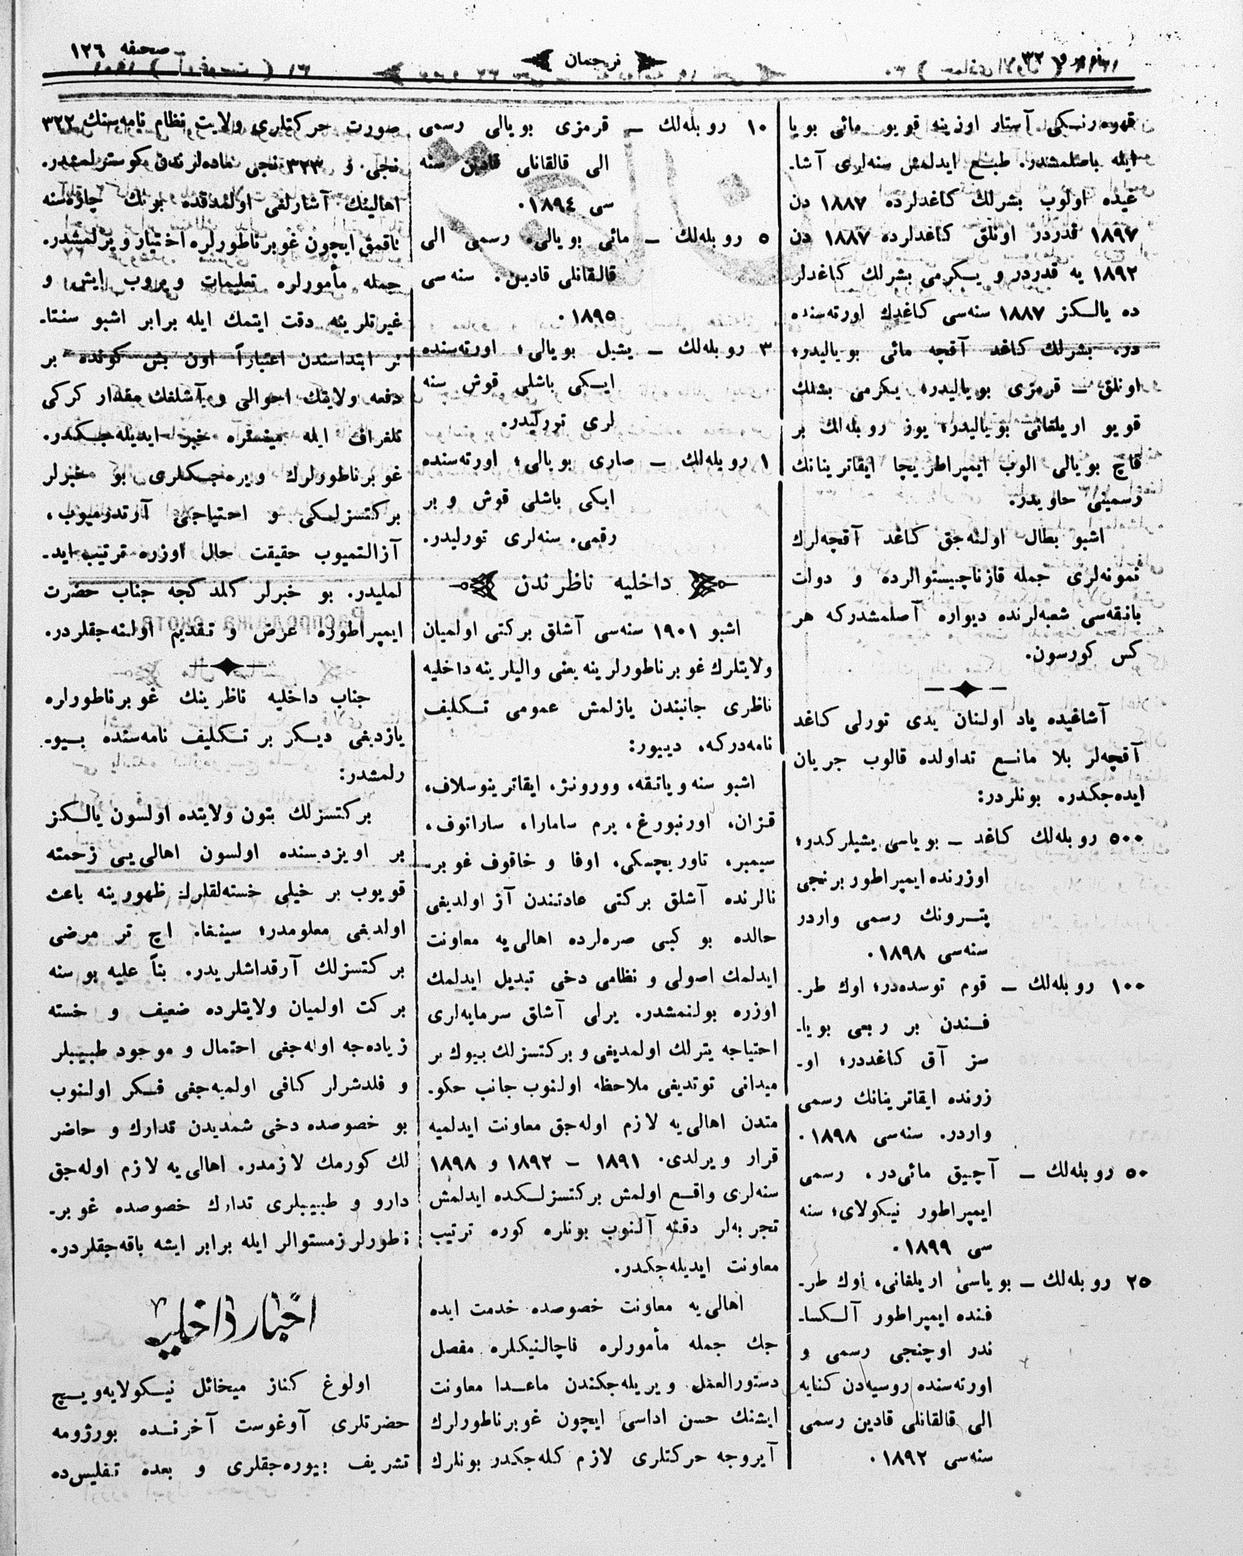 نومرو ٣٢
ترجمان
صحيفه ١٢٦
قهوه‌رنكی آستار اوزينه قويو مائی بويا
ايله باصلمشدر. طبع ايدلمش سنه‌لری آشا‌ـ
غيده اولوب بشرلك كاغدلرده ١٨٨٧ دن
١٨٩٧ قدردر اونلق كاغدلرده ١٨٨٧ دن
١٨٩٢ يه قدردر و يكرمی بشرلك كاغدلر
ده يالكز ١٨٨٧ سنه‌سی كاغدك اورته‌سنده
در. بشرلك كاغد آقچه مائی بوياليدر؛
اونلق ـ قرمزی بوياليدر؛ يكرمی بشلك
قويو اريلقانی بوياليدر؛ يوز روبله‌لك بر
قاچ بويالی الوب ايمپراطريچا ايقاترينانك
رسمينی حاويدر.
اشبو بطال اولنه‌جق كاغد آقچه‌لرك
نمونه‌لری جمله قازناچيستوالرده و دولت
بانقه‌سی شعبه‌لرنده ديواره آصلمشدركه هر
كس كورسون.
آشاغيده ياد اولنان يدی تورلی كاغد
آقچه‌لر بلا مانع تداولده قالوب جريان
ايده‌جكدر. بونلردر:
٥٠٠ روبله‌لك كاغد ـ بوياسی يشيلركدر؛
اوزرنده ايمپراطور برنجی
پترونك رسمی واردر
سنه‌سی ١٨٩٨.
١٠٠ روبله‌لك ـ قوم توسده‌در؛ اوك طر‌ـ
فندن بر ربعی بويا‌ـ
سز آق كاغددر؛ او‌ـ
زرنده ايقاترينانك رسمی
واردر. سنه‌سی ١٨٩٨.
٥٠ روبله‌لك ـ آچيق مائی‌در. رسمی
ايمپراطور نيكولای؛ سنه
سی ١٨٩٩.
٢٥ روبله‌لك ـ بوياسی اريلقانی، اوك طر‌ـ
فنده ايمپراطور آلكسا‌ـ
ندر اوچنجی رسمی و
اورته‌سنده روسيه‌دن كنايه
الی قالقانلی قادين رسمی
سنه‌سی ١٨٩٢.
١٠ روبله‌لك ـ قرمزی بويالی رسمی
الی قالقانلی قادين سنه
سی ١٨٩٤.
٥ روبله‌لك ـ مائی بويالی. رسمی الی
قالقانلی قادين. سنه‌سی
١٨٩٥.
٣ روبله‌لك ـ يشيل بويالی؛ اورته‌سنده
ايكی باشلی قوش سنه
لری تورليدر.
١ روبله‌لك ـ صاری بويالی؛ اورته‌سنده
ايكی باشلی قوش و بر
رقمی. سنه‌لری تورليدر.
داخليه ناظرندن
اشبو ١٩٠١ سنه‌سی آشلق بركتی اولميان
ولايتلرك غوبرناطورلرينه يعنی واليلرينه داخليه
ناظری جانبندن يازلمش عمومی تكليف
نامه‌دركه. دييور:
اشبو سنه وياتقه، وورونژ، ايقاترينوسلاف،
قزان، اورنبورغ، پرم سامارا، ساراتوف،
سيمبر، تاوريچسكی، اوفا و خاقوف غوبر‌ـ
نالرنده آشلق بركتی عادتندن آز اولديغی
حالده بو كبی صره‌لرده اهالی‌يه معاونت
ايدلمك اصولی و نظامی دخی تبديل ايدلمك
اوزره بولنمشدر. يرلی آشلق سرمايه‌لری
احتياجه يترلك اولمديغی و بركتسزلك بيوك بر
ميدانی توتديغی ملاحظه اولنوب جانب حكو‌ـ
متدن اهالی‌يه لازم اوله‌جق معاونت ايدلميه
قرار ويرلدی. ١٨٩١ ـ ١٨٩٢ و ١٨٩٨
سنه‌لری واقع اولمش بركتسزلكده ايدلمش
تجربه‌لر دقته آلنوب بونلره كوره ترتيب
معاونت ايديله‌جكدر.
اهالی‌يه معاونت خصوصده خدمت ايده
جك جمله مأمورلره ناچالنيكلره مفصل
دستورالعمل ويريله‌جكندن ماعدا معاونت
ايشنك حسن اداسی ايچون غوبرناطورلرك
آيروجه حركتلری لازم كله‌جكدر بونلرك
صورت حركتلری ولايت نظام نامه‌سنك ٣٢٢
نجی و ٣٢٣ نجی ماده‌لرندن كوسترلمشدر.
اهالينك آشارلغی اولندقده بونك چاره‌سنه
باقمق ايچون غوبرناطورلره اختيار ويرلمشدر.
جمله مأمورلره تعليمات ويروب ايش و
غيرتلرينه دقت ايتمك ايله برابر اشبو سنتا‌ـ
بر ابتداسندن اعتباراً اون بش كونده بر
دفعه ولايتك احوالی و آشلغك مقدار كركی
تلغراف ايله مينستره خبر ايديله‌جكدر.
غوبرناطورلرك ويره‌جكلری بو خبرلر
بركتسزلكی و احتياجی آرتدرميوب،
آزالتميوب حقيقت حال اوزره ترتيب ايد‌ـ
لمليدر. بو خبرلر كلدكجه جناب حضرت
ايمپراطوره عرض و تقديم اولنه‌جقلردر.
جناب داخليه ناظرينك غوبرناطورلره
يازديغی ديكر بر تكليف نامه‌سنده بيو‌ـ
رلمشدر:
بركتسزلك بتون ولايتده اولسون يالكز
بر اويزدسنده اولسون اهالی‌يی زحمته
قويوب بر خيلی خسته‌لقلرك ظهورينه باعث
اولديغی معلومدر؛ سينغا. اچ تر مرضی
بركتسزلك آرقداشلريدر. بناً عليه بو سنه
بركت اولميان ولايتلرده ضعيف و خسته
زياده‌جه اوله‌جغی احتمال و موجود طبيبلر
و فلدشرلر كافی اولميه‌جغی فكر اولنوب
بو خصوصده دخی شمديدن تدارك و حاضر
لك كورمك لازمدر. اهالی‌يه لازم اوله‌جق
دارو و طبيبلری تدارك خصوصده غوبر‌ـ
ناطورلر زمستوالر ايله برابر ايشه باقه‌جقلردر.
اخبار داخليه
اولوغ كناز ميخائل نيكولايه‌ويچ
حضرتلری آوغوست آخرنده بورژومه
تشريف بيوره‌جقلری و بعده تفليس‌ده